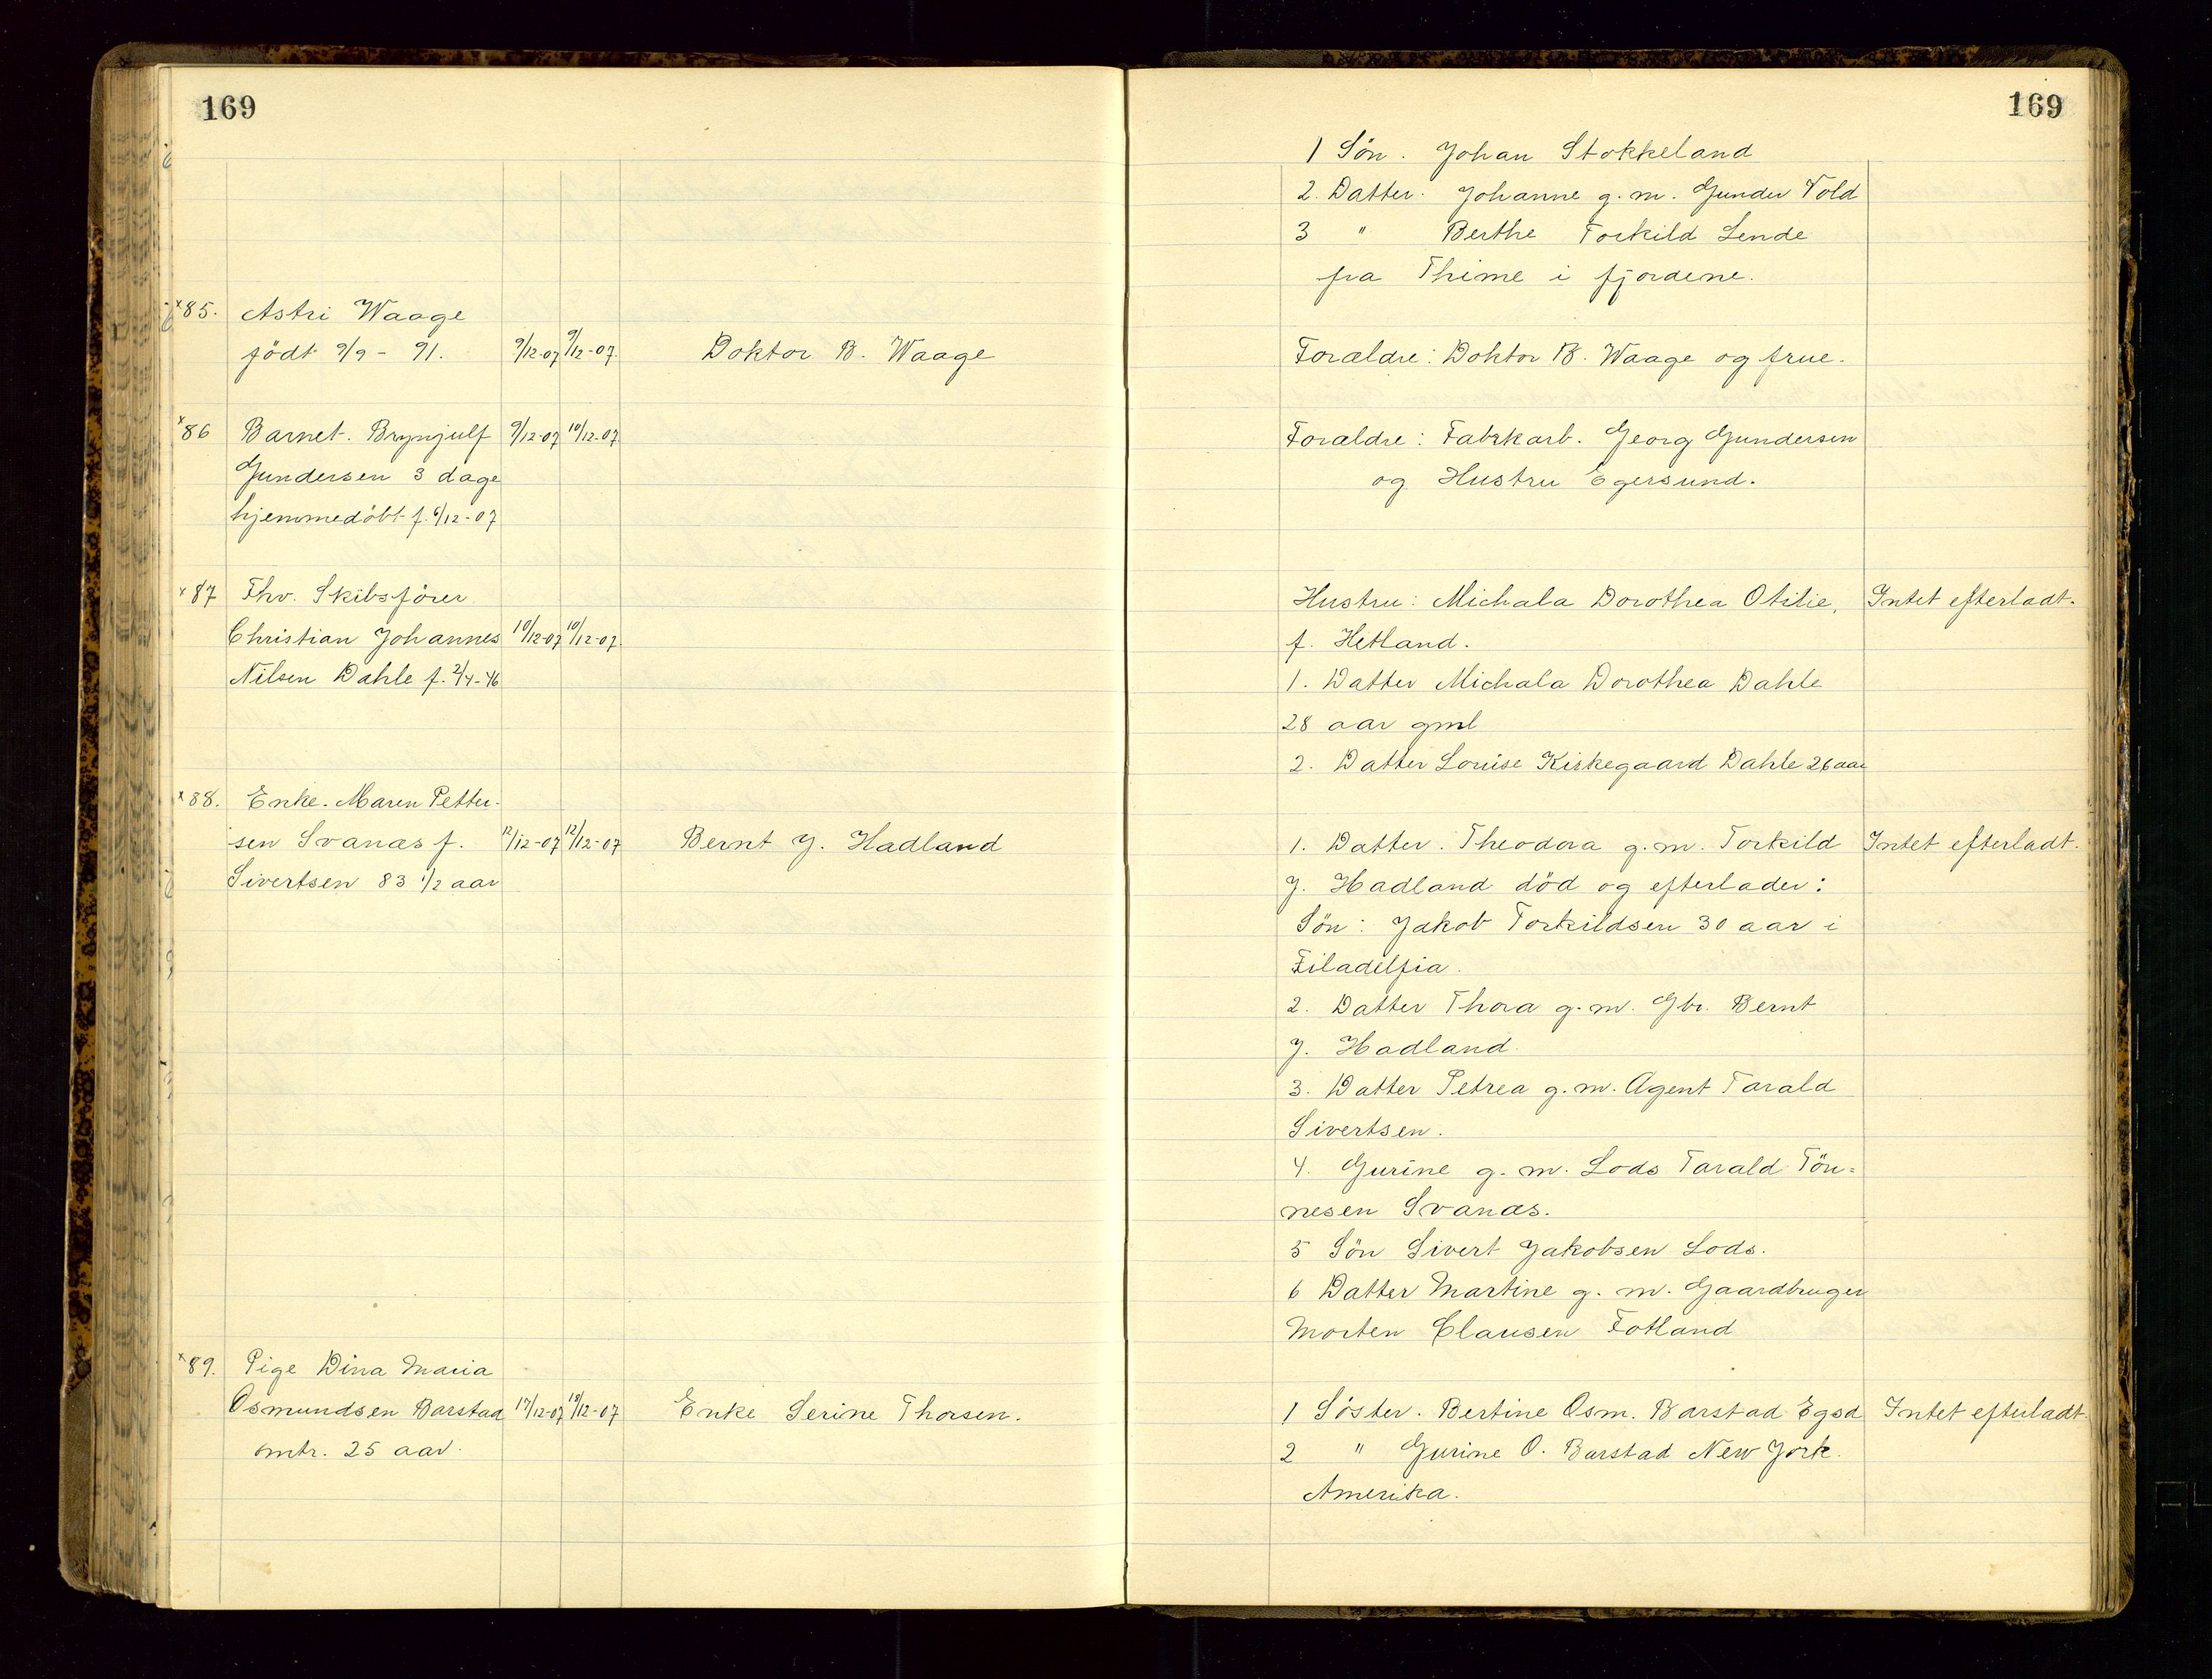 169
x85. Astri Waage
födt 9/9 - 91. 9/12-07 9/12-07. Doktor B. Waage
x86 Barnet. Brynjulf 9/12-07 10/12-07
Gundersen 3 dage
hjemmedöbt f. 6/12-07
x87 Fhv. Skibsförer
Christian Johannes 10/12-07 10/12-07.
Nilsen Dahle f. 2/4-46
x88. Enke. Maren Petter-
sen Svanæs f. 12/12-07 12/12-07 Bernt J. Hadland
Sivertsen 83 1/2 aar
x89. Pige Dina Maria
Osmundsen Barstad 17/12-07 18/12-07 Enke Serine Thorsen.
omtr. 25 aar.
169
1 Sön. Johan Stokkeland
2. Datter. Johanne g. m. Gunder Vold
3 " Berthe Torkild Lende
fra Thime i fjordene.
Forældre: Doktor B. Waage og frue.
Forældre: Fabrkarb. Georg Gundersen
og Hustru Egersund.
Hustru: Michala Dorothea Otilie, Intet efterladt.
f. Hetland.
1. Datter Michala Dorothea Dahle
28 aar gml
2. Datter Louise Kirkegaard Dahle 26 aar
1. Datter. Theodora g. m. Torkild Intet efterladt.
J. Hadland död og efterlader:
Sön: Jakob Torkildsen 30 aar i
Filadelfia.
2. Datter Thora g. m. Gbr. Bernt
J. Hadland.
3. Datter Petrea g. m. Agent Tarald
Sivertsen.
4. Gurine g. m. Lods Tarald Tön=
nesen Svanæs.
5 Sön Sivert Jakobsen Lods.
6 Datter Martine g. m. Gaardbruger
Morten Clausen Fotland
1 Söster. Bertine Osm. Barstad Egsd Intet efterladt.
2 " Gurine O. Barstad New York.
Amerika.